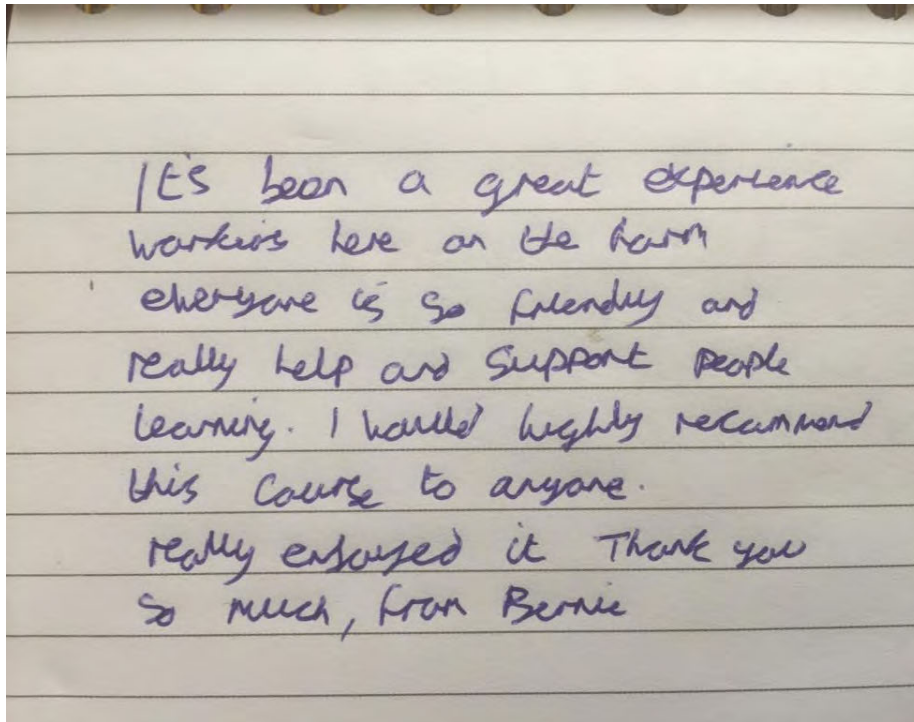 It's been a great experience
working here on the farm
everyone is so friendly and
really help and support people
learning. I would highly recommend
this course to anyone.
really enjoyed it Thank you
so much, from Bernie